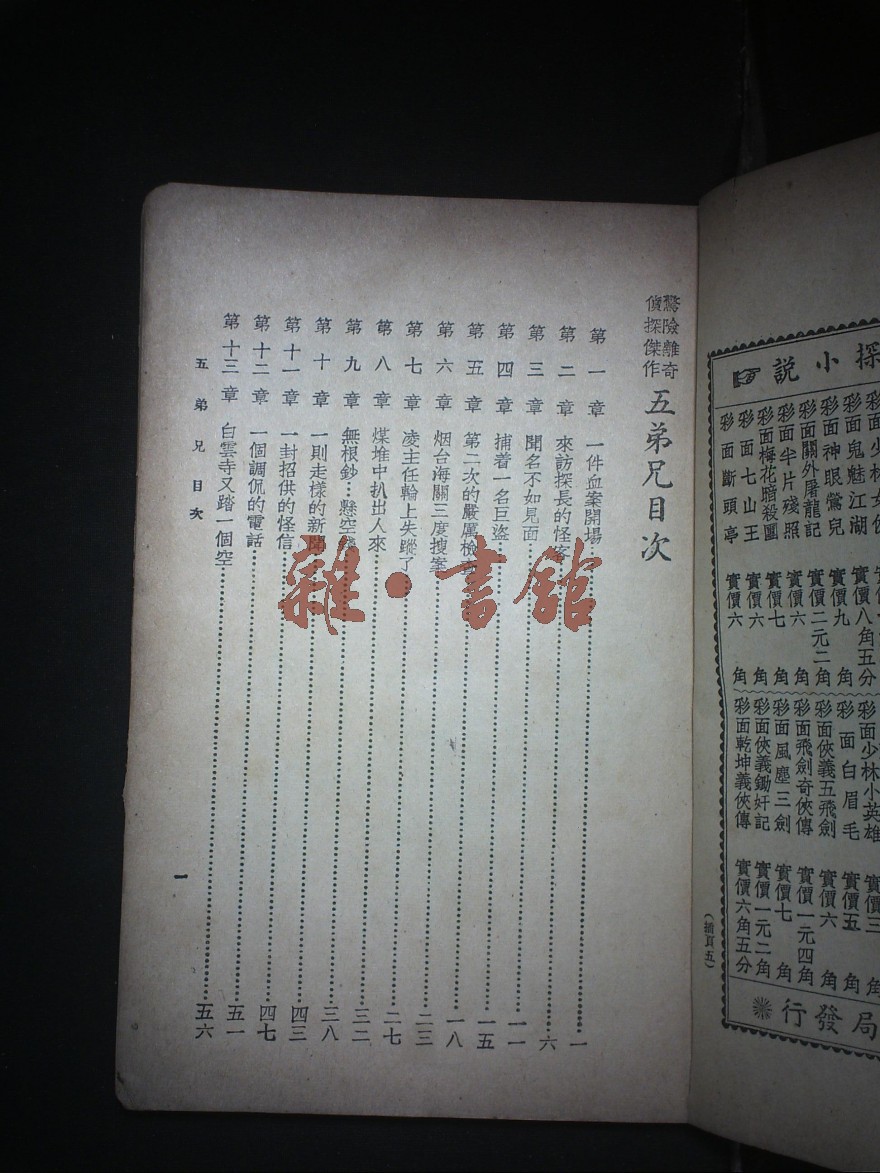 探小說
彩面鬼魅江湖 實價八角五分
彩面神眼鶯兒 實價九角
彩面關外屠龍記 實價二元二角
彩面半片殘照 實價六角
彩面梅花暗殺團 實價七角
彩面七山王
彩面斷頭亭 實價六角
彩面少林小英雄 實價三角
彩面白眉毛 實價五角
彩面俠義五飛劍 實價六角
彩面飛劍奇俠傳 實價一元四角
彩面風塵三劍 實價七角
彩面俠義鋤奸記 實價一元二角
彩面乾坤義俠傳 實價六角五分
局發行
(插頁五)
驚險離奇
偵探傑作
五弟兄目次
第一章 一件血案開場……一
第二章 來訪探長的怪客……六
第三章 聞名不如見面……一一
第四章 捕着一名巨盜……一五
第五章 第二次的嚴厲檢……一八
第六章 烟台海關三度搜案……二三
第七章 凌主任輪上失蹤了……二七
第八章 煤堆中扒出人來……三二
第九章 無根鈔…懸空……三八
第十章 一則走樣的新聞……四三
第十一章 一封招供的怪信……四七
第十二章 一個調侃的電話……五一
第十三章 白雲寺又踏一個空……五六
五弟兄目次
一
雜·書館